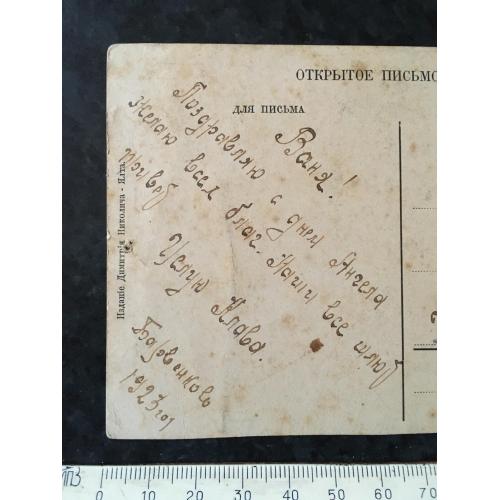 ОТКРЫТОЕ ПИСЬМО
ДЛЯ ПИСЬМА
Ваня!
Поздравляю с днем Ангела
Желаю всех благ. Наши все шлют
привет
Целую Клава.
Барвенково
1923 год
Изданіе Димитрія Николича - Ялта.
0 10 20 30 40 50 60 70